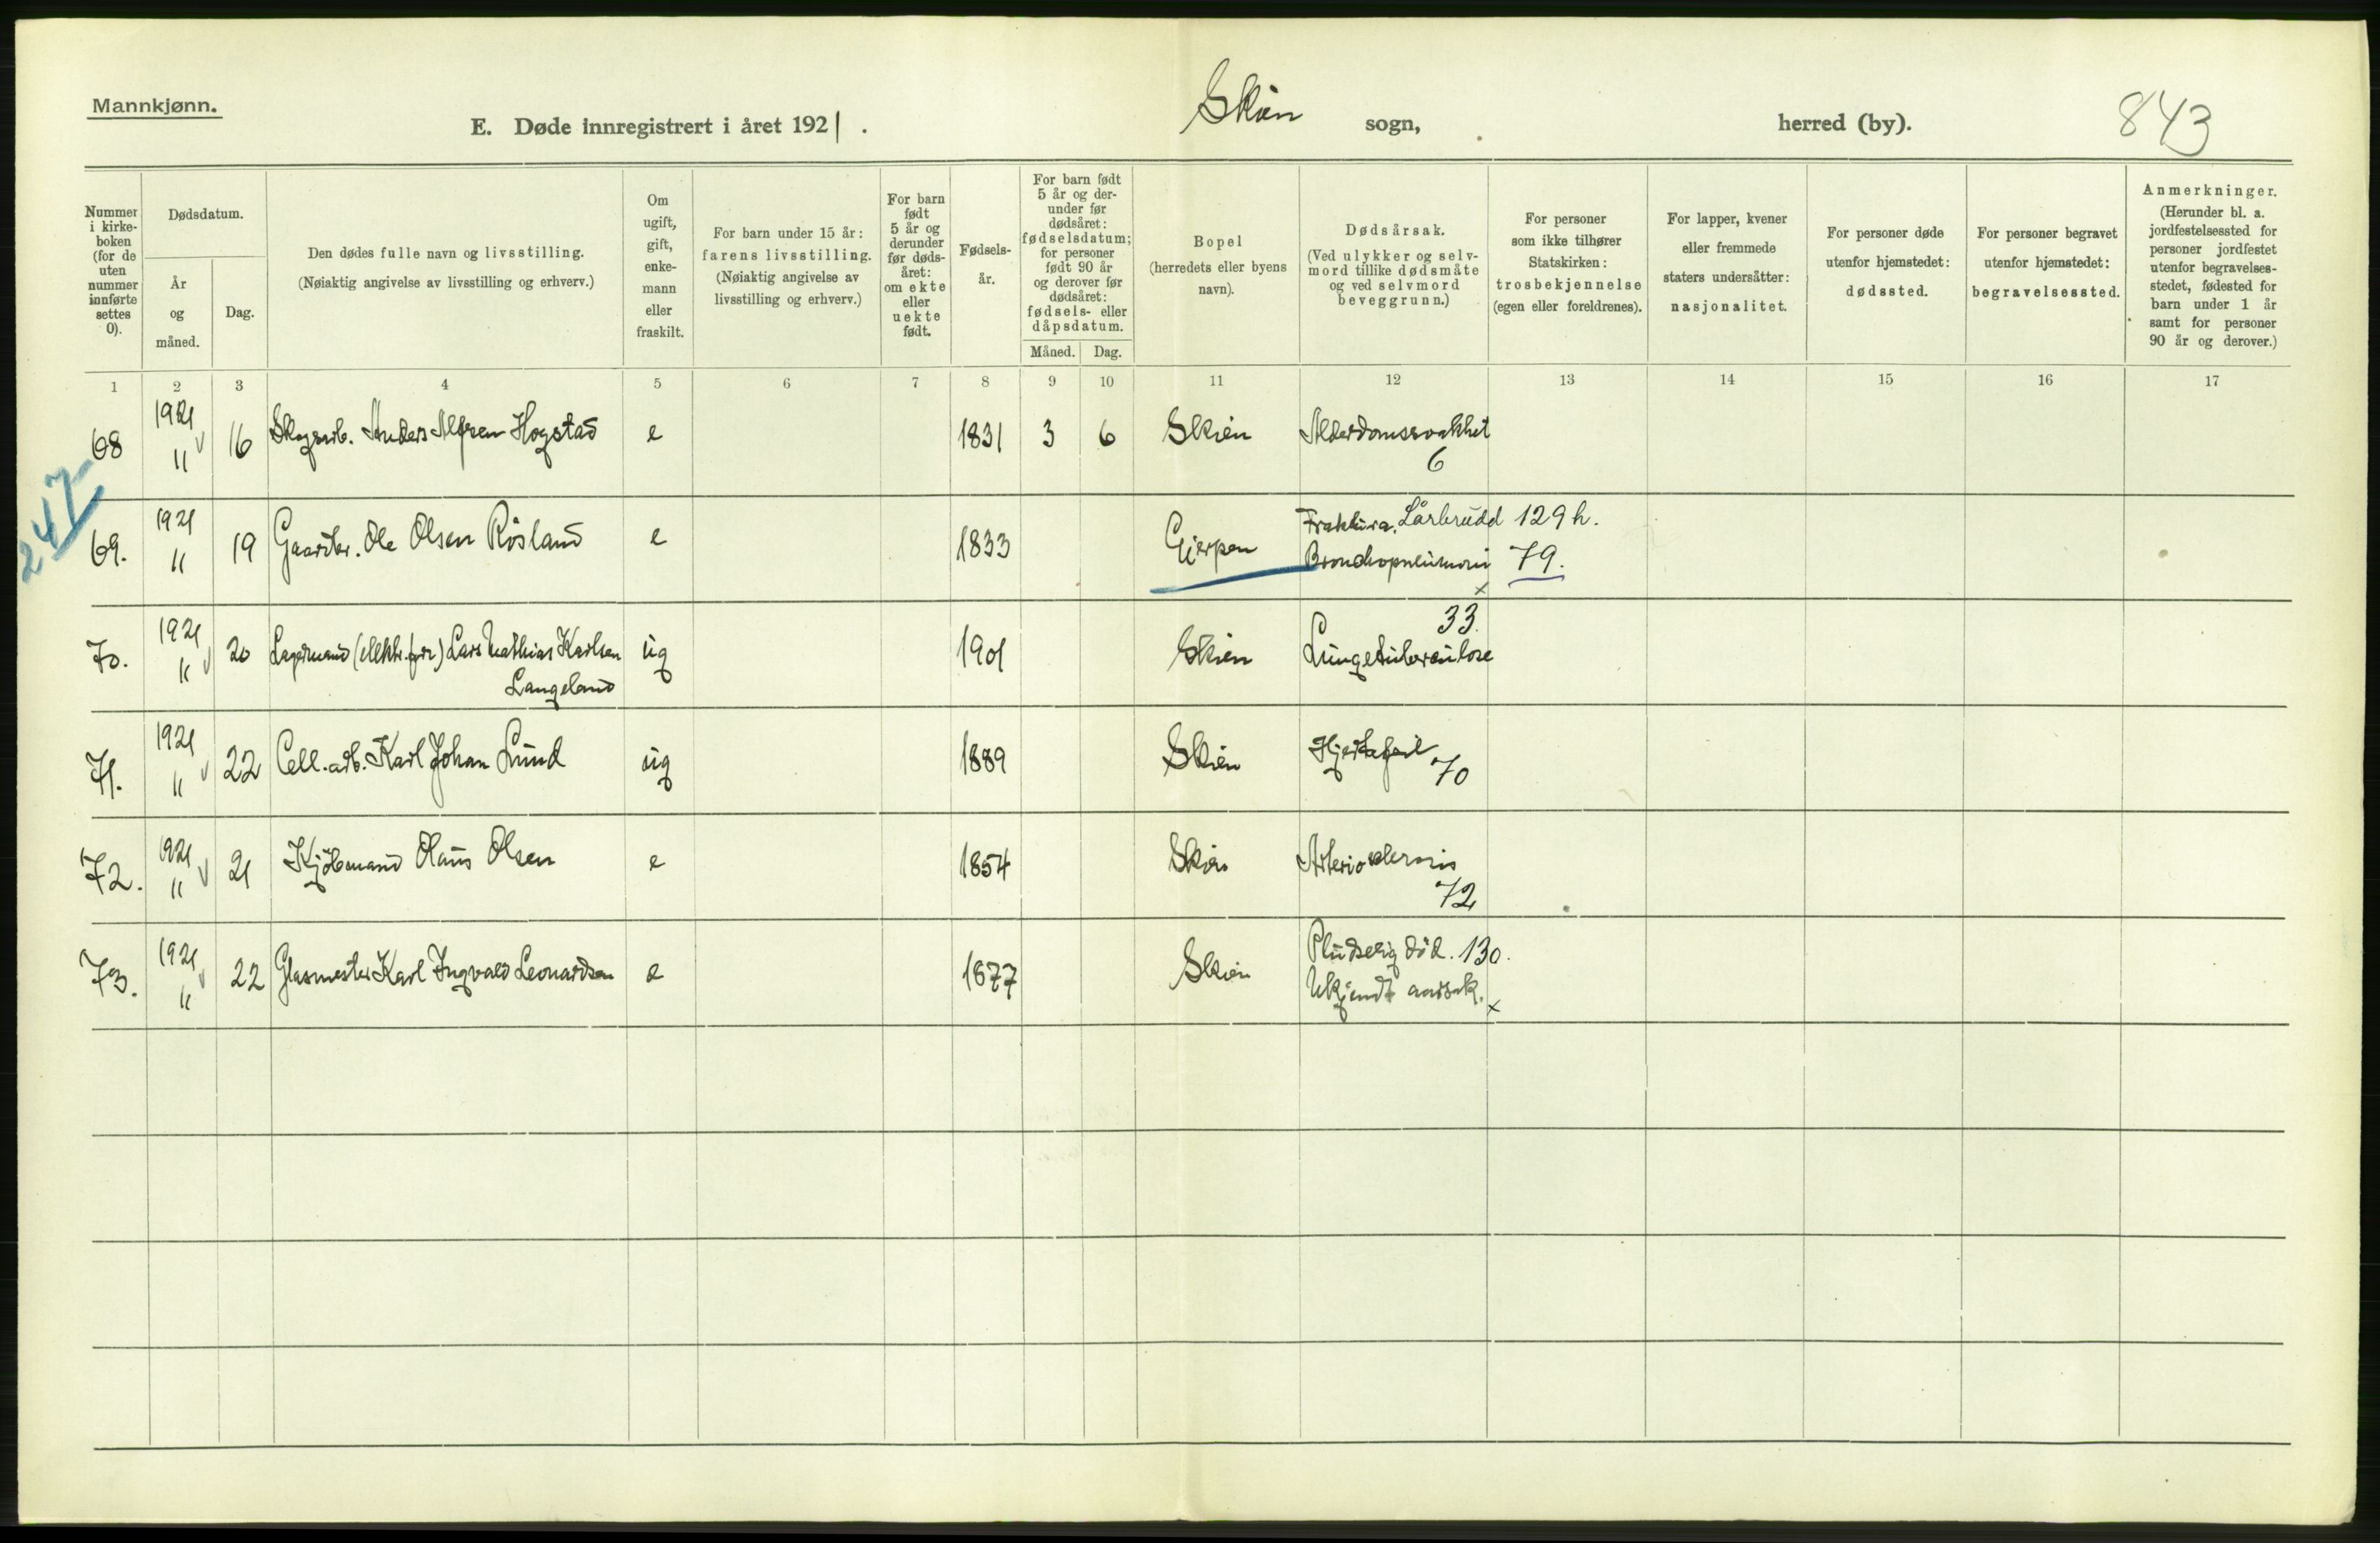 Mannkjønn.
E. Døde innregistrert i året 1921.
Skien sogn,
herred (by).
843
Nummer i kirke-boken (for de uten nummer innførte settes 0).
Dødsdatum.
År og måned.
Dag.
Den dødes fulle navn og livsstilling.
(Nøiaktig angivelse av livsstilling og erhverv.)
Om ugift, gift, enke-mann eller fraskilt.
For barn under 15 år: farens livsstilling.
(Nøiaktig angivelse av livsstilling og erhverv.)
For barn født 5 år og derunder før døds-året: om ekte eller uekte født.
Fødsels-år.
For barn født 5 år og der-under før dødsåret: fødselsdatum; for personer født 90 år og derover før dødsåret: fødsels- eller dåpsdatum.
Måned.
Dag.
Bopel (herredets eller byens navn).
Dødsårsak.
(Ved ulykker og selv-mord tillike dødsmåte og ved selvmord beveggrunn.)
For personer som ikke tilhører Statskirken: trosbekjennelse (egen eller foreldrenes).
For lapper, kvener eller fremmede staters undersåtter: nasjonalitet.
For personer døde utenfor hjemstedet: dødssted.
For personer begravet utenfor hjemstedet: begravelsessted.
Anmerkninger.
(Herunder bl. a. jordfestelsessted for personer jordfestet utenfor begravelses-stedet, fødested for barn under 1 år samt for personer 90 år og derover.)
1 2 3 4 5 6 7 8 9 10 11 12 13 14 15 16 17
68 1921 " 16 Anders Hogstad e 1831 3 6 Skien Alderdomssvakhet
6
247
69. 1921 " 19 Gaardbr. Ole Olsen Røsland e 1833 Gjerpen Fraktura. Lårbrudd 129 h.
Bronchopneumoni 79.
70. 1921 " 20 Lagermand Lars Mathias Karlsen ug 1901 Skien 33.
Langeland Lungetuberculose
71. 1921 " 22 Cell.arb. Karl Johan Lund ug 1889 Skien Hjertefeil
70
72. 1921 " 21 Kjøbmand Olaus Olsen e 1854 Skien Arteriosclerosis
72
73. 1921 " 22 Glasmester Karl Ingvald Leonardsen e 1877 Skien Pludselig død. 130.
Ukjendt aarsak. x